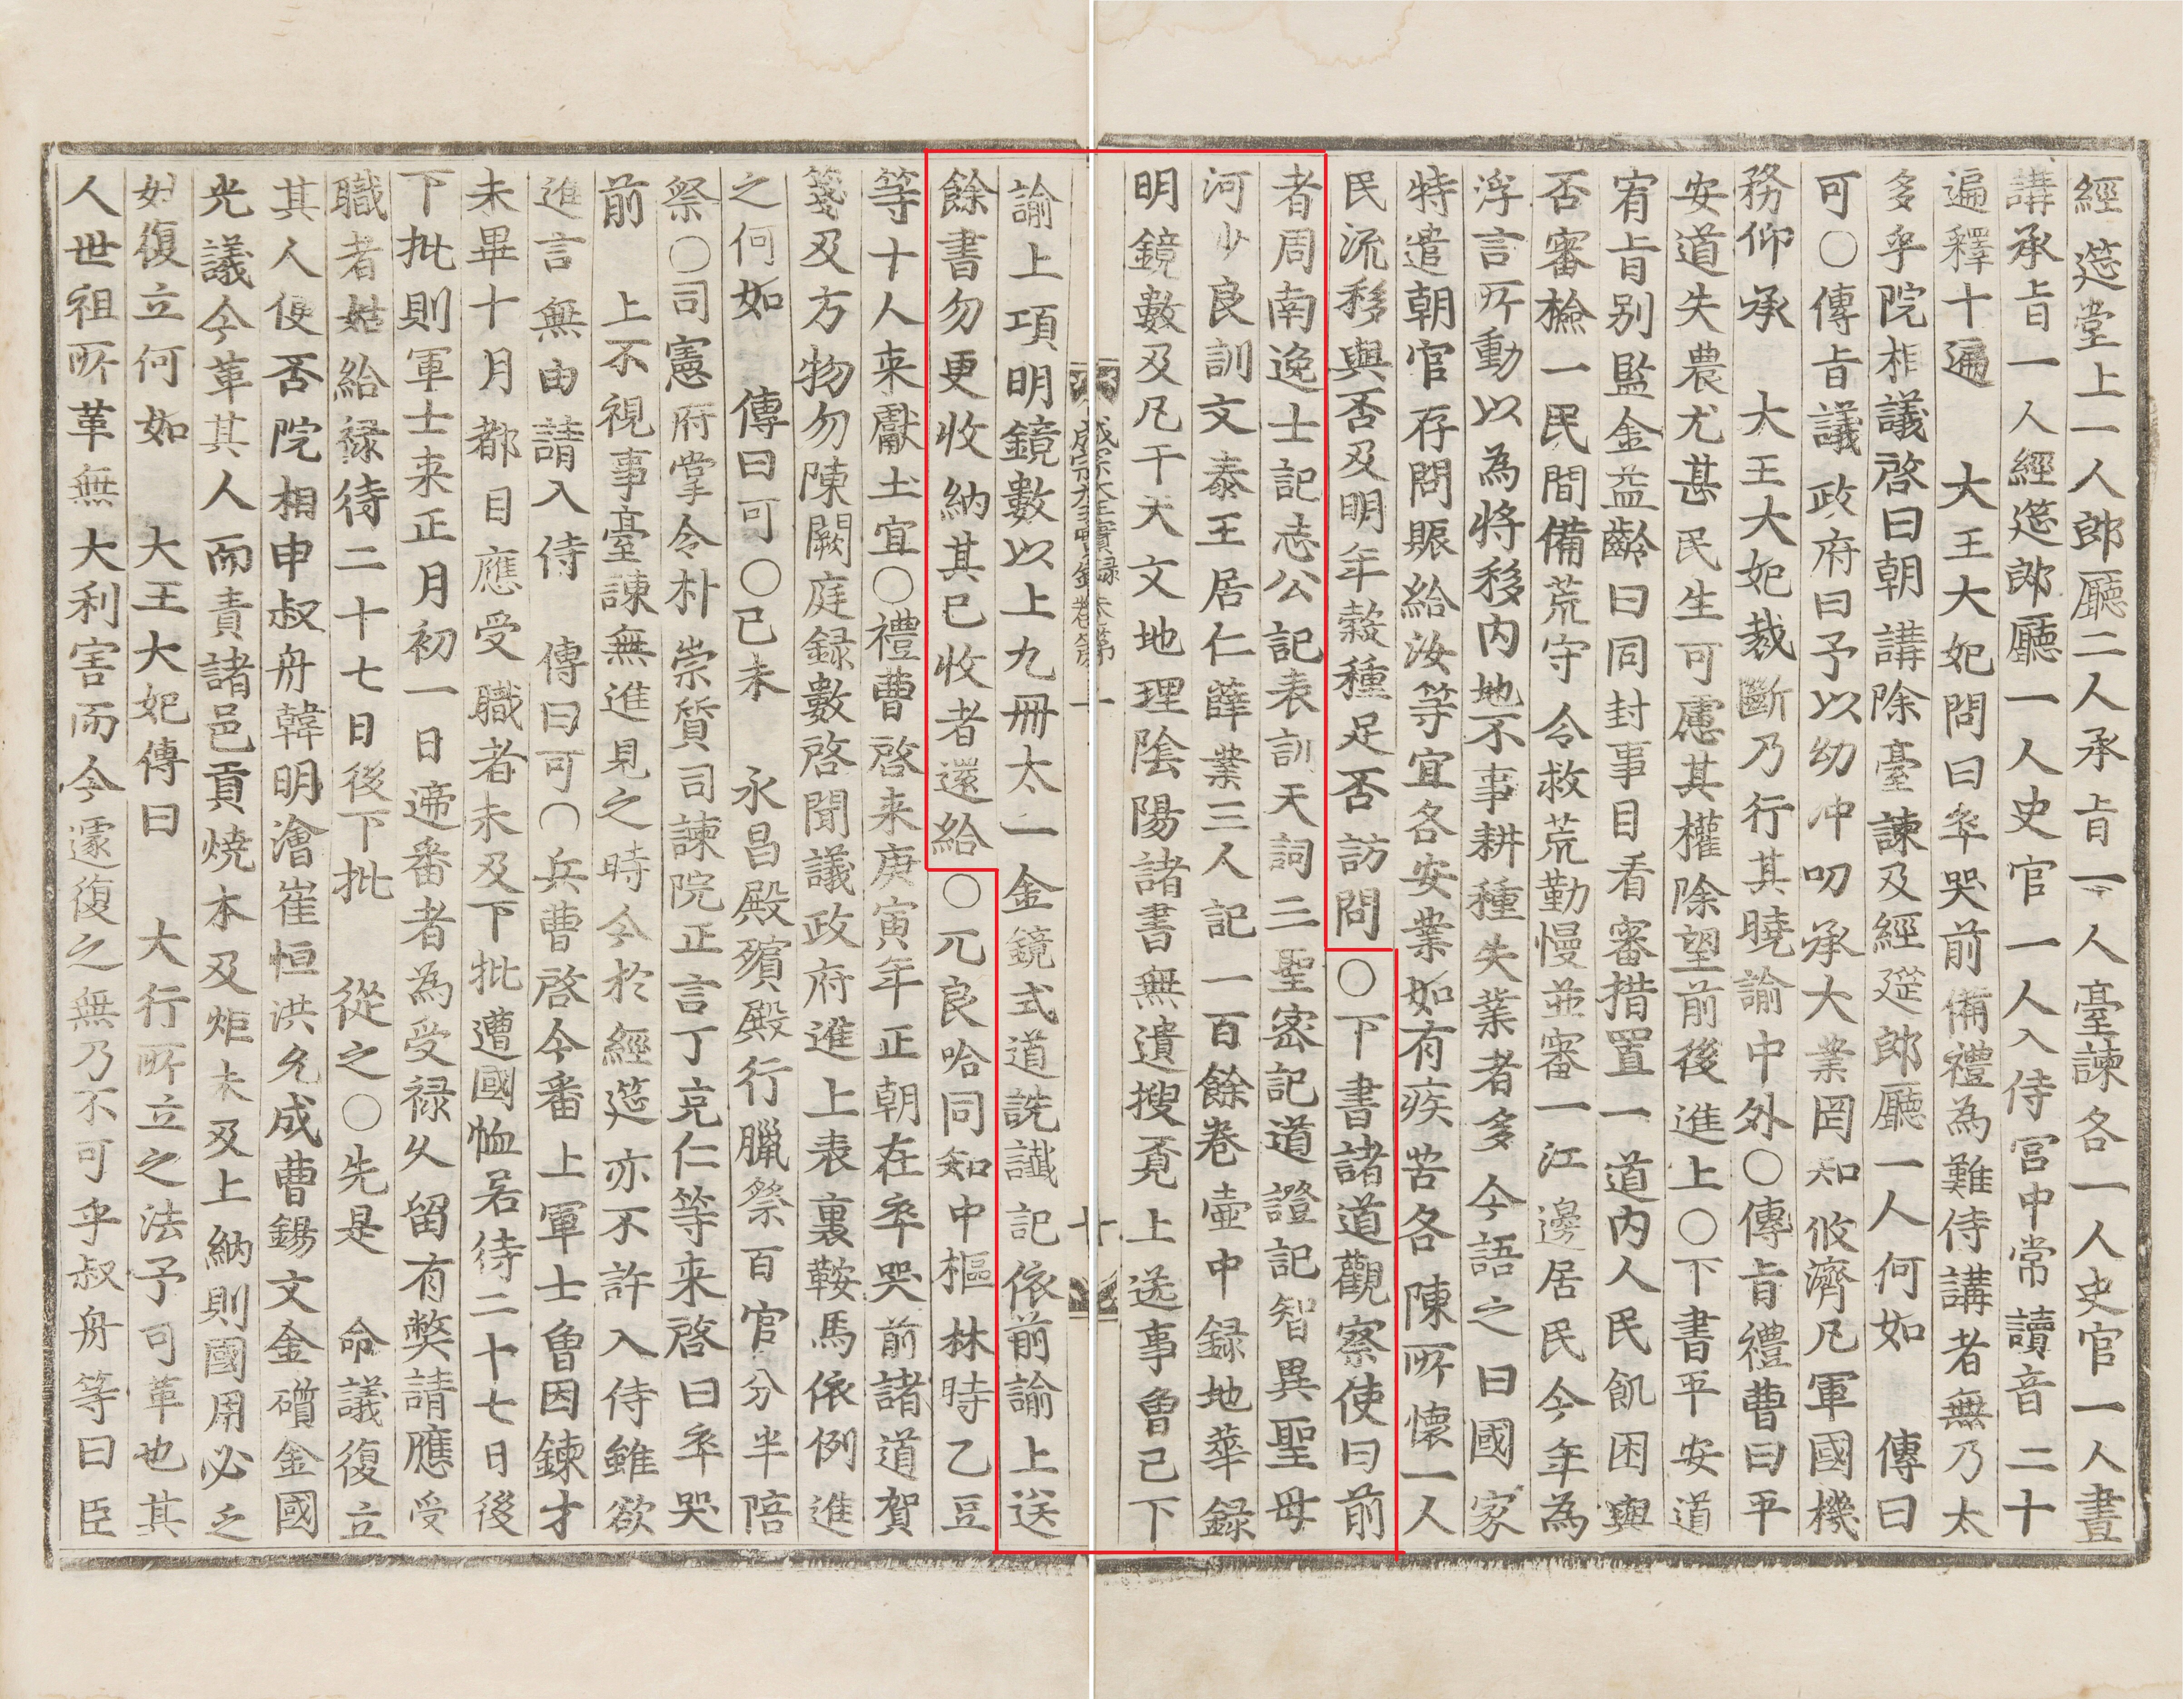 經 筵堂上一人郎廳二人承旨一人臺諫各一人史官一人晝
講承旨一人經筵郎廳一人史官一人入侍宮中常讀音二十
遍釋十遍 大王大妃問曰卒哭前備禮為難侍講者無乃太
多乎院相議啓曰朝講除臺諫及經筵郎廳一人何如 傳曰
可○傳旨議政府曰予以幼冲叨承大業罔知攸濟凡軍國機
務仰承 大王大妃裁斷乃行其曉諭中外○傳旨禮曹曰平
安道失農尤甚民生可慮其權除望前後進上○下書平安道
宥旨別監金益齡曰同封事目看審措置一道內人民飢困與
否審檢一民間備荒守令救荒勤慢並審一江邊居民今年為
浮言所動以為將移內地不事耕種失業者多今語之曰國家
特遣朝官存問賑給汝等宜各安業如有疾苦各陳所懷一人
民流移與否及明年穀種足否訪問○下書諸道觀察使曰前
者周南逸士記志公記表訓天詞三聖密記道證記智異聖母
河少良訓文泰王居仁薛業三人記一百餘卷壺中錄地華錄
明鏡數及凡干天文地理陰陽諸書無遺搜覓上送事曾已下
成宗大王實錄卷第一 十
諭上項明鏡數以上九冊太一金鏡式道詵讖記依前諭上送
餘書勿更收納其已收者還給○兀良哈同知中樞林時乙豆
等十人來獻土宜○禮曹啓來庚寅年正朝在卒哭前諸道賀
箋及方物勿陳闕庭錄數啓聞議政府進上表裏鞍馬依例進
之何如 傳曰可○己未 永昌殿殯殿行臘祭百官分半陪
祭○司憲府掌令朴崇質司諫院正言丁克仁等來啓曰卒哭
前 上不視事臺諫無進見之時今於經筵亦不許入侍雖欲
進言無由請入侍 傳曰可○兵曹啓今番上軍士曾因鍊才
未畢十月都目應受職者未及下批遭國恤若待二十七日後
下批則軍士來正月初一日遞番者為受祿久留有弊請應受
職者姑給祿待二十七日後下批 從之○先是 命議復立
其人便否院相申叔舟韓明澮崔恒洪允成曹錫文金礩金國
光議今革其人而責諸邑貢燒木及炬未及上納則國用必乏
姑復立何如 大王大妃傳曰 大行所立之法予可革也其
人世祖所革無大利害而今遽復之無乃不可乎叔舟等曰臣